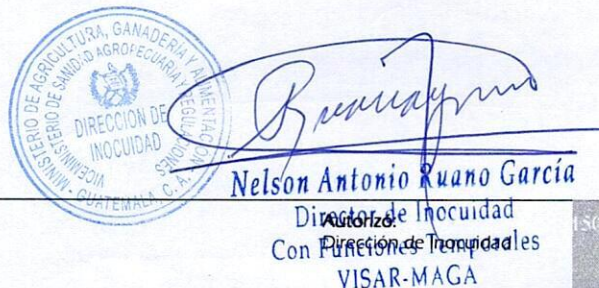 MINISTERIO DE AGRICULTURA, GANADERIA Y ALIMENTACION
VICEMINISTERIO DE SANIDAD AGROPECUARIA Y REGULACIONES
DIRECCIÓN DE
INOCUIDAD
GUATEMALA, C. A.
Nelson Antonio Ruano García
Director de Inocuidad
Autorizó:
Con Funciones Temporales
Dirección de Inocuidad
VISAR-MAGA